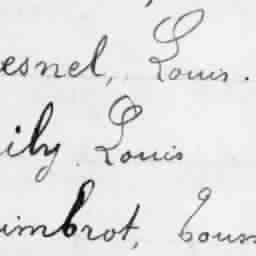 esnel, Louis.
ily Louis
imbrot, Touss